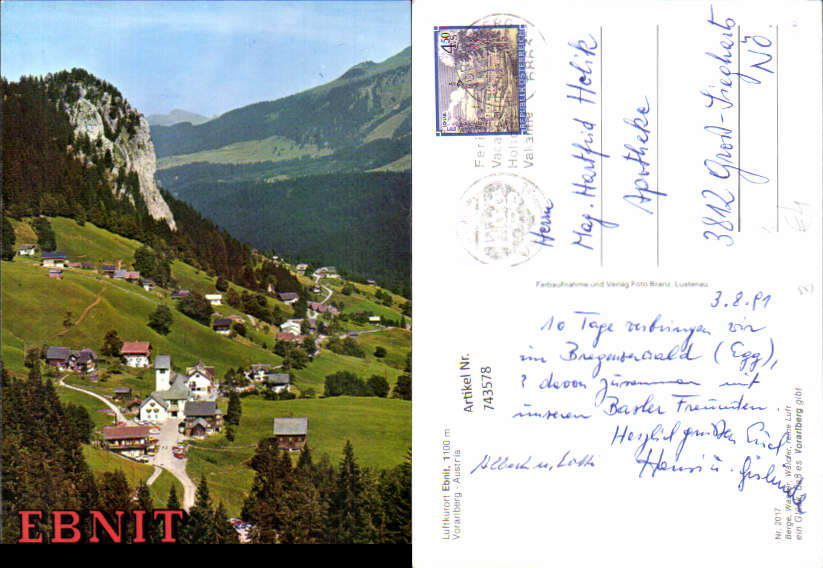 EBNIT
4.50
S
REPUBLIK ÖSTERREICH
Herrn
Mag. Hartfrid Holik
Apotheke
3812 Groß-Siegharts
NÖ.
Farbaufnahme und Verlag Foto Branz, Lustenau
Artikel Nr.
743578
3.8.91
10 Tage verbringen wir
im Bregenzerwald (Egg),
7 davon zusammen mit
unseren Basler Freunden.
Herzlich grüßen Euch
Hansi u.
Luftkurort Ebnit, 1100 m
Vorarlberg - Austria
Nr. 2017
Berge, Wasser, Wälder, reine Luft
ein Glück, daß es Vorarlberg gibt